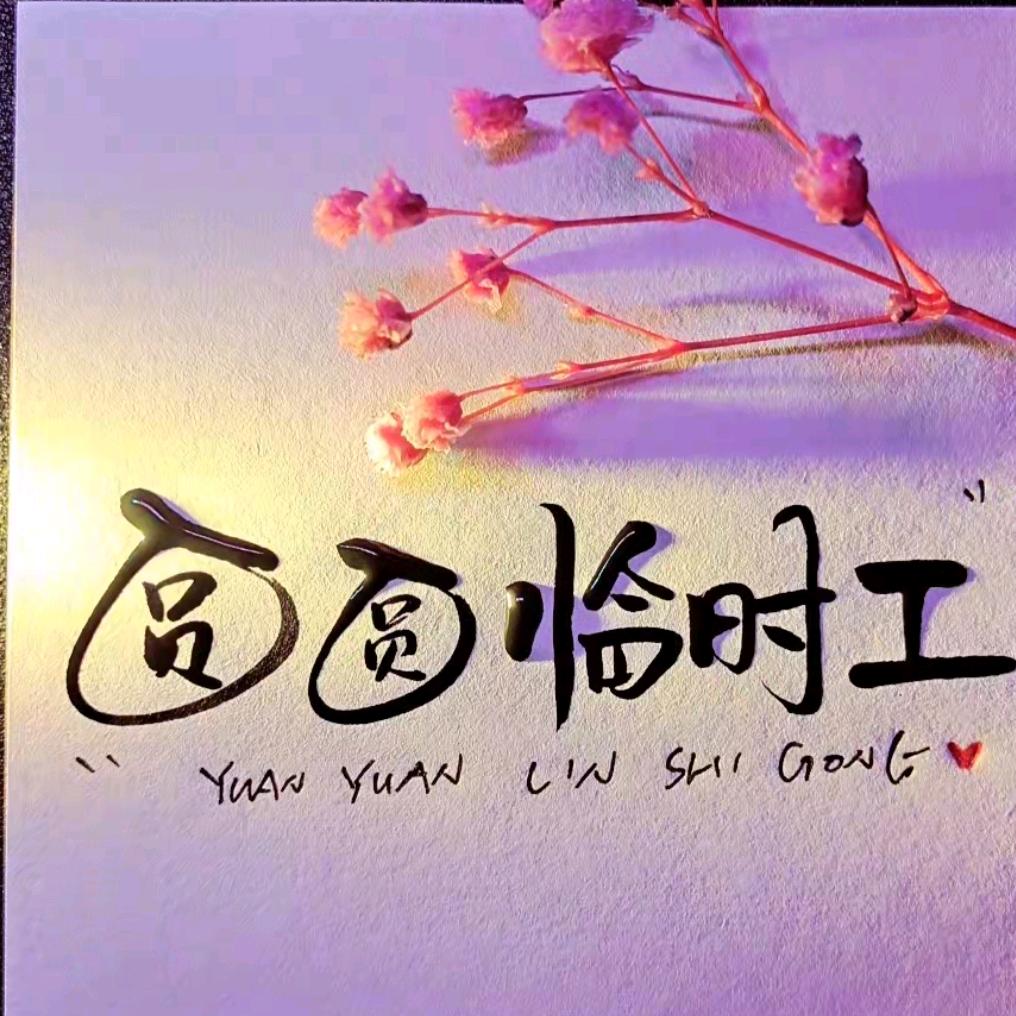 圆圆临时工
YUAN YUAN LIN SHI GONG